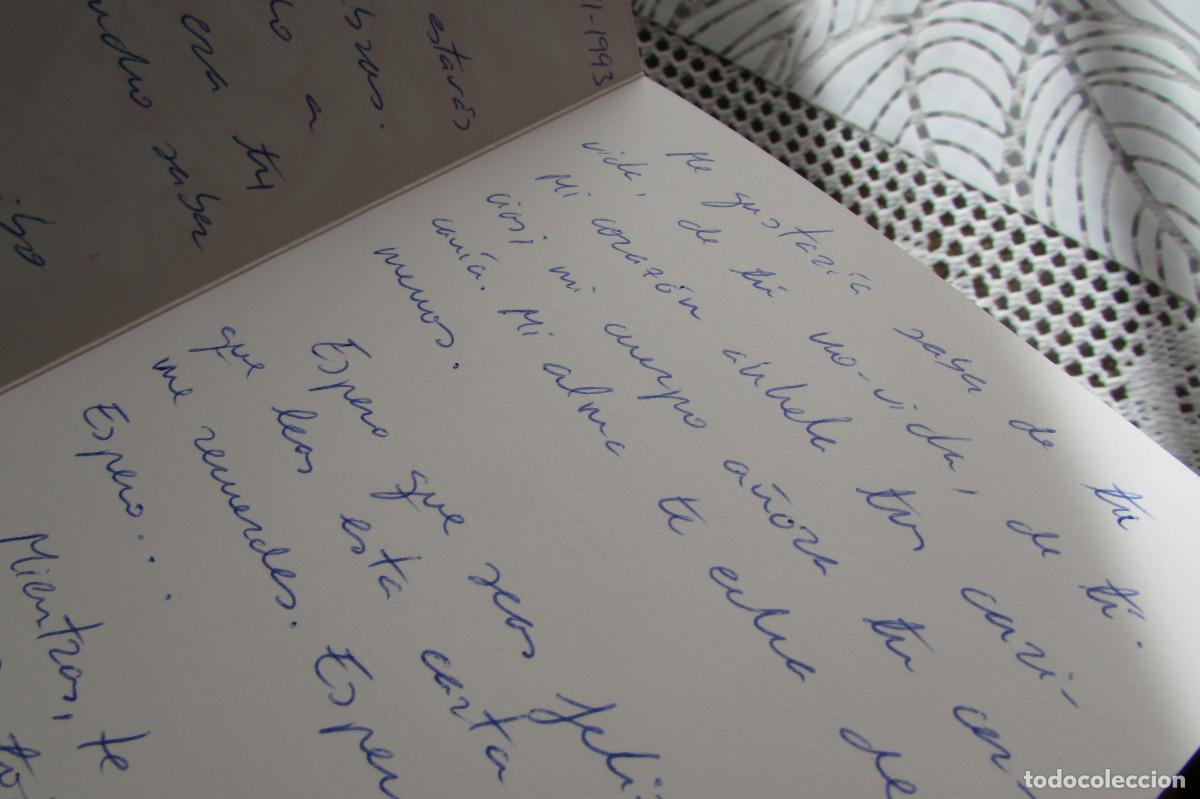 1-1993
estarás
bras.
a
era tu
saber
ibo
Me gustaría saber de tu
vida, de tu no-vida, de ti.
Mi corazón anhela tus cari-
cias; mi cuerpo añora tu cer-
canía. Mi alma te echa de
menos.
Espero que seas feli
que leas esta carta
me recuerdes. Esper
Espero...
Mientras, te
todocoleccion